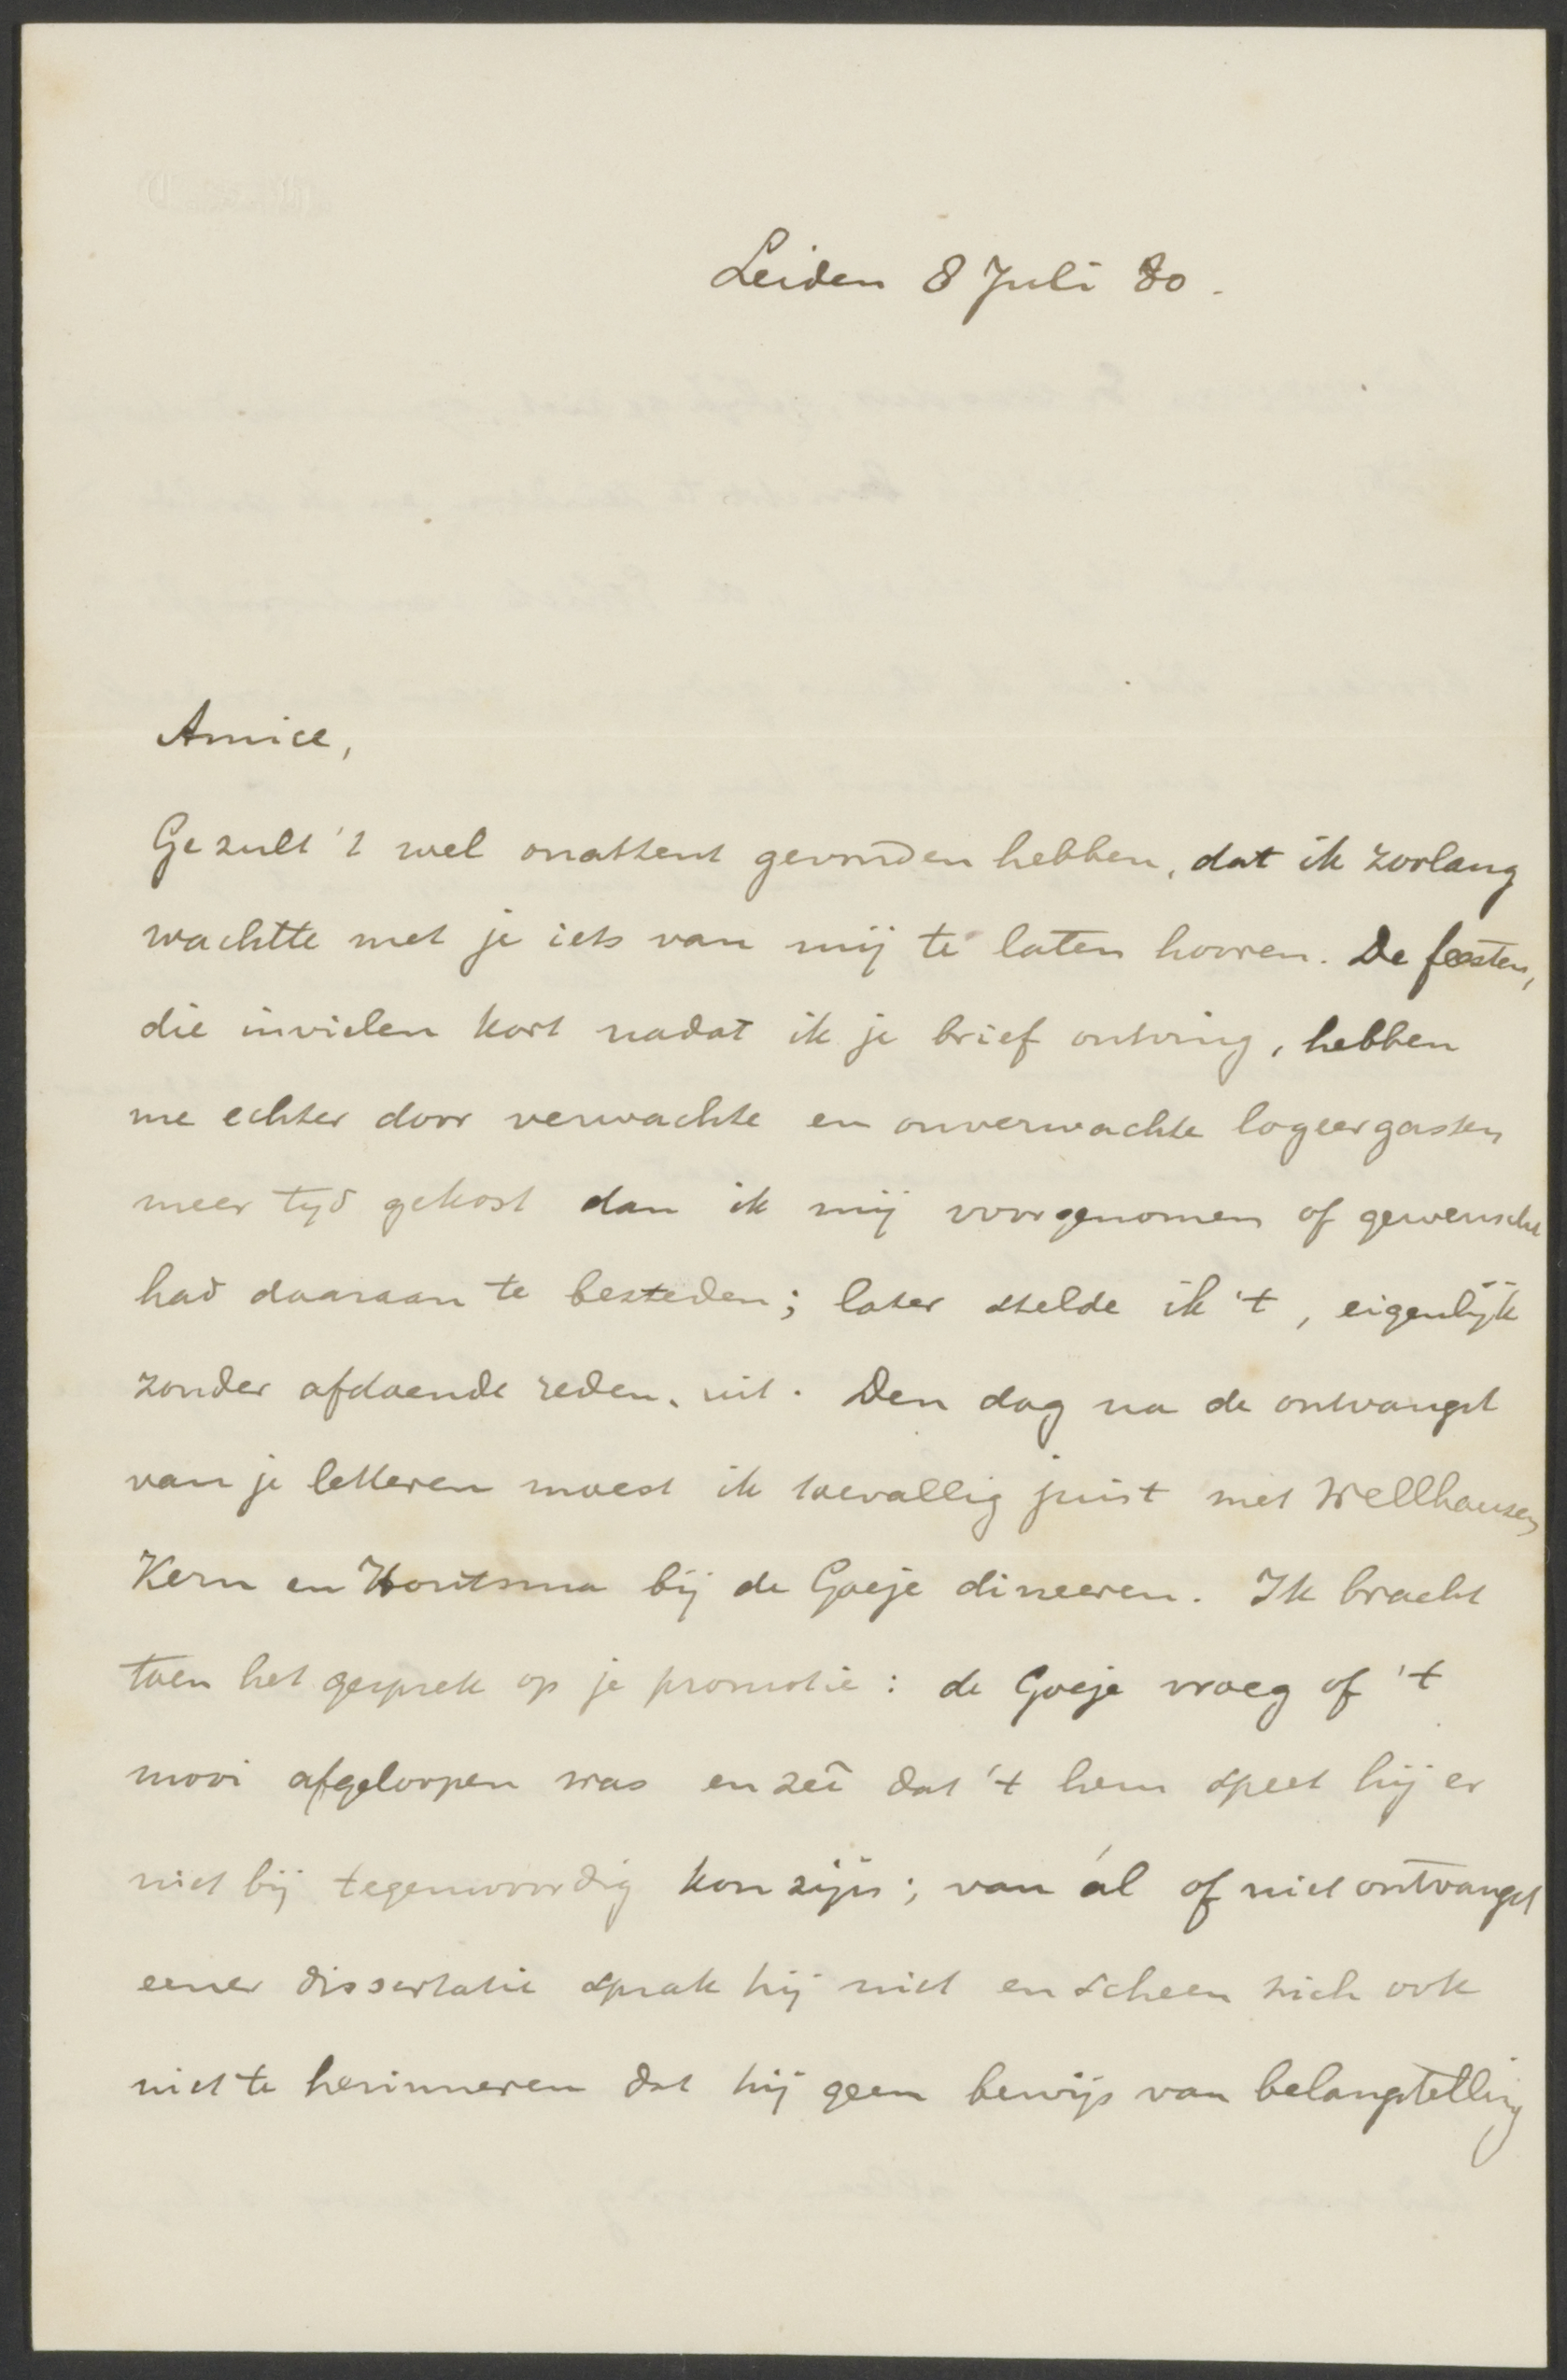 Leiden 8 Juli 80.
Amice,
Ge zult 't wel onattent gevonden hebben, dat ik zoolang
wachtte met je iets van mij te laten hooren. De feesten,
die invielen kort nadat ik je brief ontving, hebben
me echter door verwachte en onverwachte logeergasten
meer tyd gekost dan ik mij voorgenomen of gewenscht
had daaraan te besteden; later stelde ik 't, eigenlijk
zonder afdoende reden, uit. Den dag na de ontvangst
van je letteren moest ik toevallig juist met Wellhausen,
Kern en Houtsma bij de Goeje dineeren. Ik bracht
toen het gesprek op je promotie: de Goeje vroeg of 't
mooi afgeloopen was en zei dat 't hem speet hij er
niet bij tegenwoordig kon zijn; van ál of niet ontvangst
eener dissertatie sprak hij niet en scheen zich ook
niet te herinneren dat hij geen bewijs van belangstelling